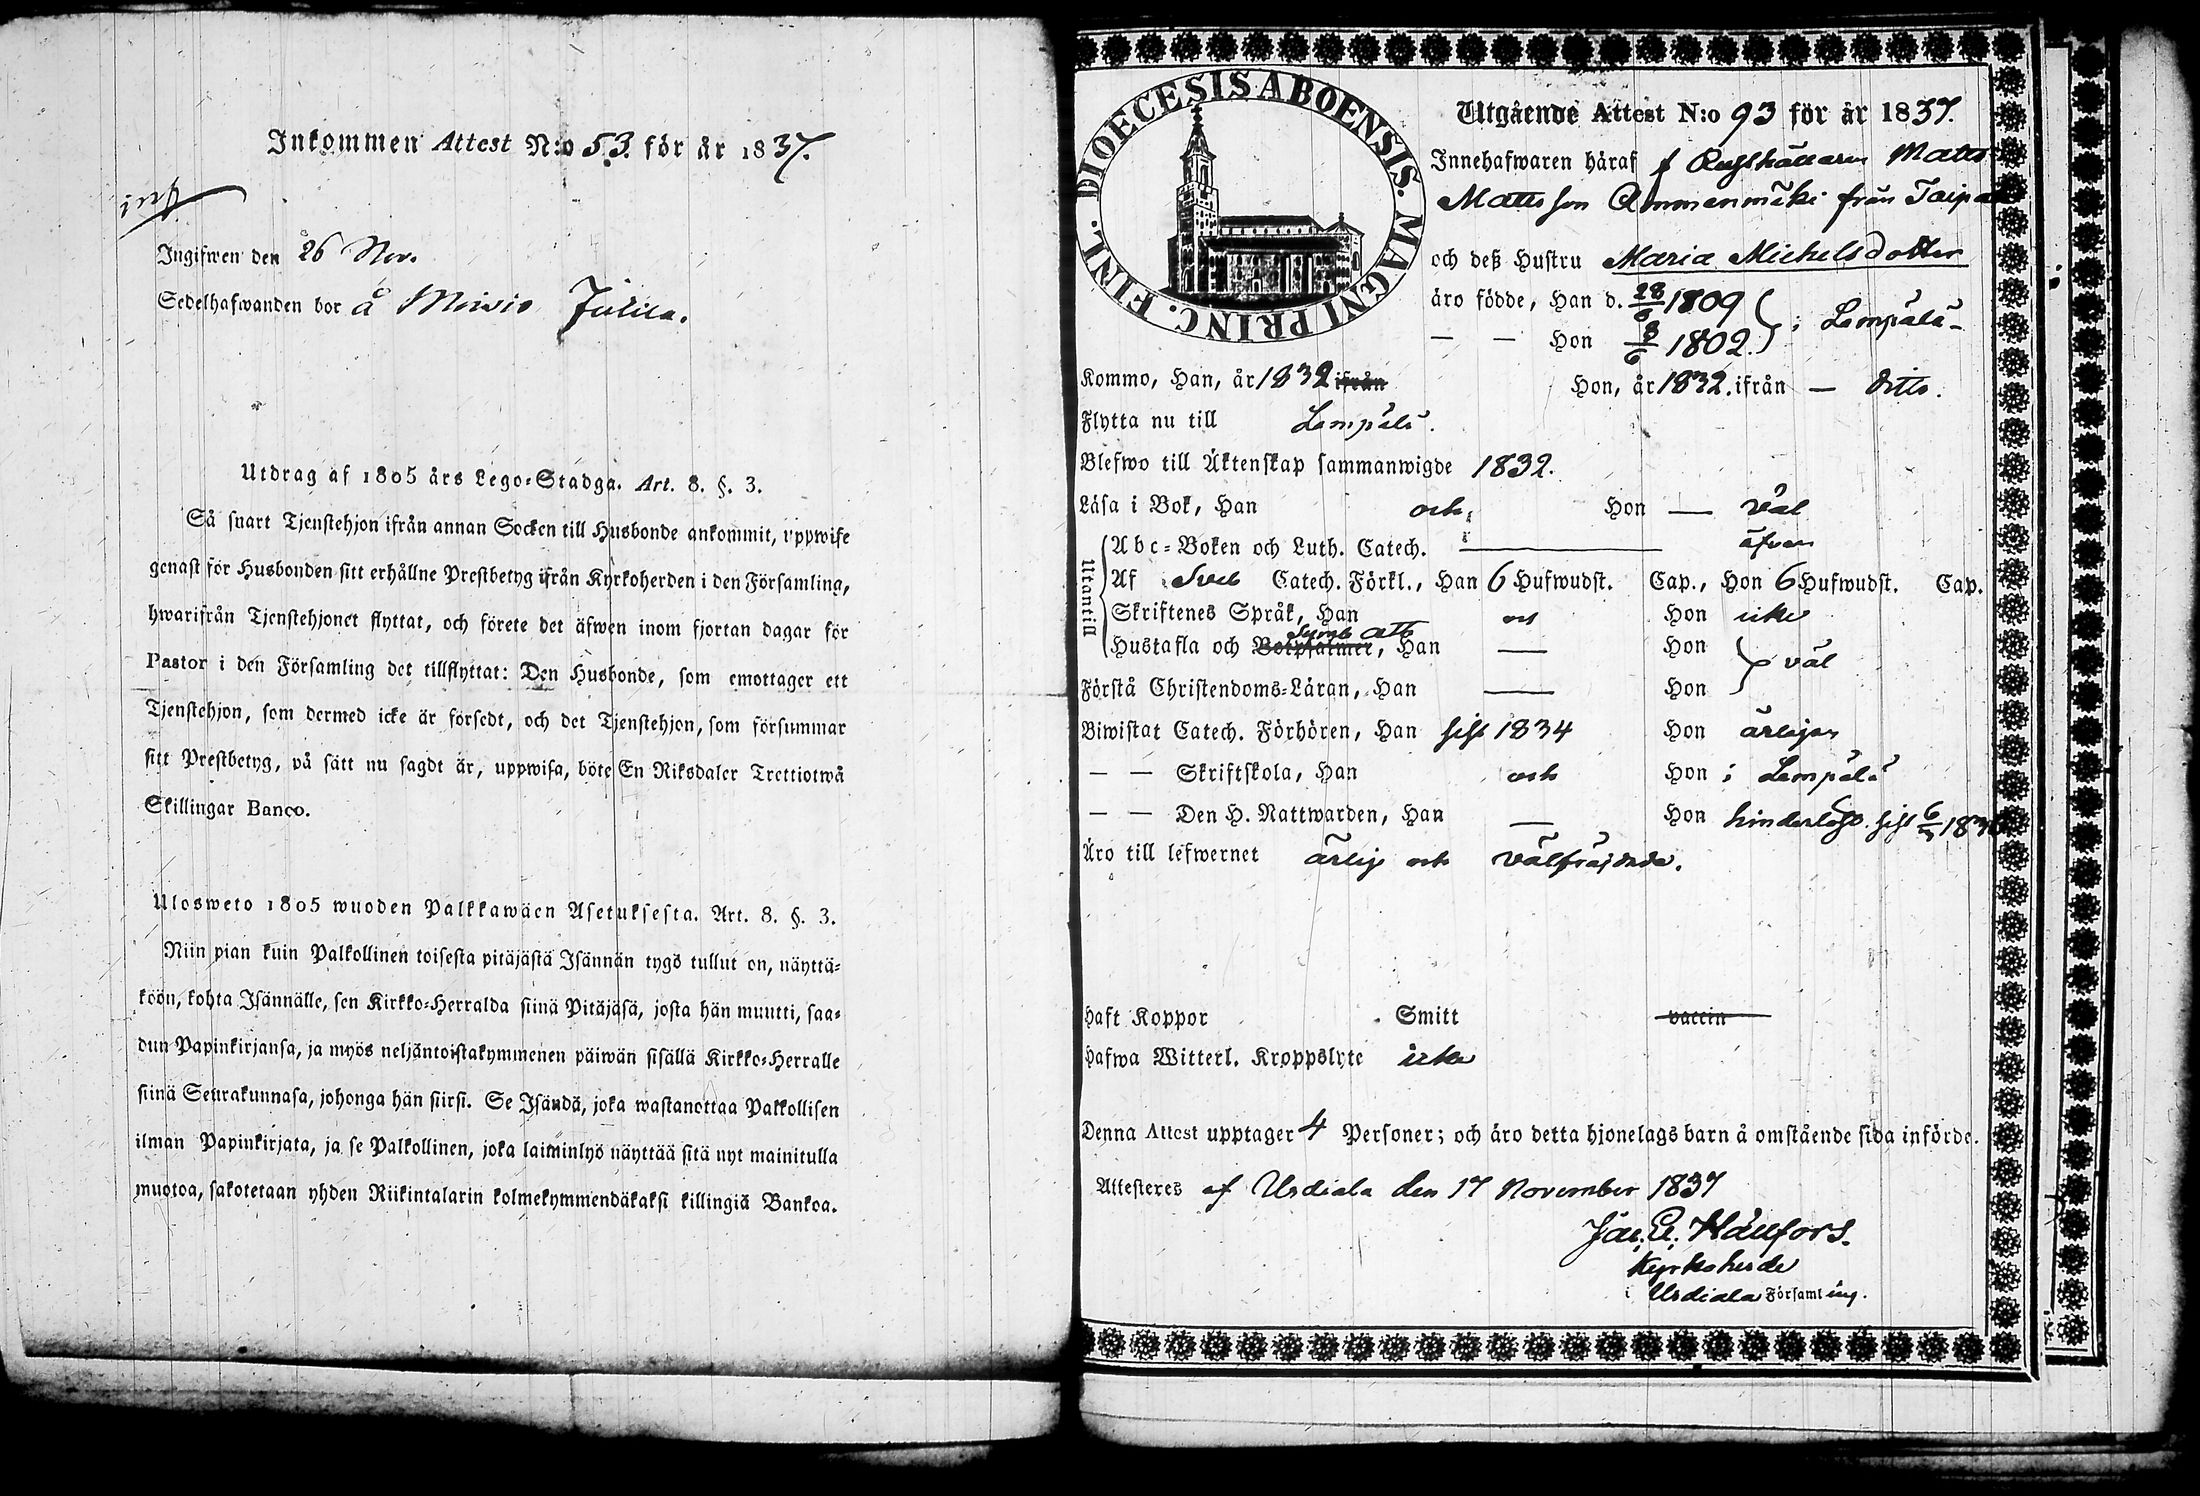 Inkommen Attest N:o 53. för år 1837.
inf
Ingifwen den 26 Nov.
Sedelhafwanden bor å Moisio Jutila.
Utdrag af 1805 års Lego-Stadga. Art. 8. §. 3.
Så snart Tjenstehjon ifrån annan Socken till Husbonde ankommit, uppwise
genast för Husbonden sitt erhållne Prestbetyg ifrån Kyrkoherden i den Församling,
hwarifrån Tjenstehjonet flyttat, och förete det äfwen inom fjortan dagar för
Pastor i den Församling det tillflyttat: Den Husbonde, som emottager ett
Tjenstehjon, som dermed icke är försedt, och det Tjenstehjon, som försummar
sitt Prestbetyg, på sätt nu sagdt är, uppwisa, böte En Riksdaler Trettiotwå
Skillingar Banco.
Ulosweto 1805 wuoden Palkkawäen Asetuksesta. Art. 8. §. 3.
Niin pian kuin Palkollinen toisesta pitäjästä Isännän tygö tullut on, näyttä-
köön, kohta Isännälle, sen Kirkko-Herralda siinä Pitäjäsä, josta hän muutti, saa-
dun Papinkirjansa, ja myös neljäntoistakymmenen päiwän sisällä Kirkko-Herralle
siinä Seurakunnasa, johonga hän siirsi. Se Isändä, joka wastanottaa Palkollisen
ilman Papinkirjata, ja se Palkollinen, joka laiminlyö näyttää sitä nyt mainitulla
muotoa, sakotetaan yhden Riikintalarin kolmekymmendäkaksi killingiä Bankoa.
DIOECESIS ABOENSIS. MAGNI PRINC. FINL.
Utgående Attest N:o 93 för år 1837.
Innehafwaren häraf f Mats
Matts son Ammenmäki från Taipale
och deß Hustru Maria Michelsdotter
äro födde, Han d. 28/6 1809
— — Hon 8/6 1802. } i Lempälä
Kommo, Han, år 1832 ifrån Hon, år 1832. ifrån — ditto.
Flytta nu till Lempälä.
Blefwo till Äktenskap sammanwigde 1832.
Läsa i Bok, Han och Hon — väl
Utantill
Abc-Boken och Luth. Catech. — äfven
Af Sveb Catech. Förkl., Han 6 Hufwudst. Cap., Hon 6 Hufwudst. Cap.
Skriftenes Språk, Han och Hon icke
Symb ath
Hustafla och Botpsalmer, Han — Hon
Förstå Christendoms-Läran, Han — Hon } väl
Biwistat Catech. Förhören, Han sist 1834 Hon årligen
— — Skriftskola, Han och Hon i Lempälä
— — Den H. Nattwarden, Han — Hon hinderlöst. sist
Äro till lefwernet ärlige och välfräjdade.
Haft Koppor Smitt vaccin
Hafwa Witterl. Kroppslyte icke
Denna Attest upptager 4 Personer; och äro detta hjonelags barn å omstående sida införde.
Attesteres af Urdiala den 17 November 1837
Jac. E. Hällfors.
Kyrkoherde
i Urdiala Församling.